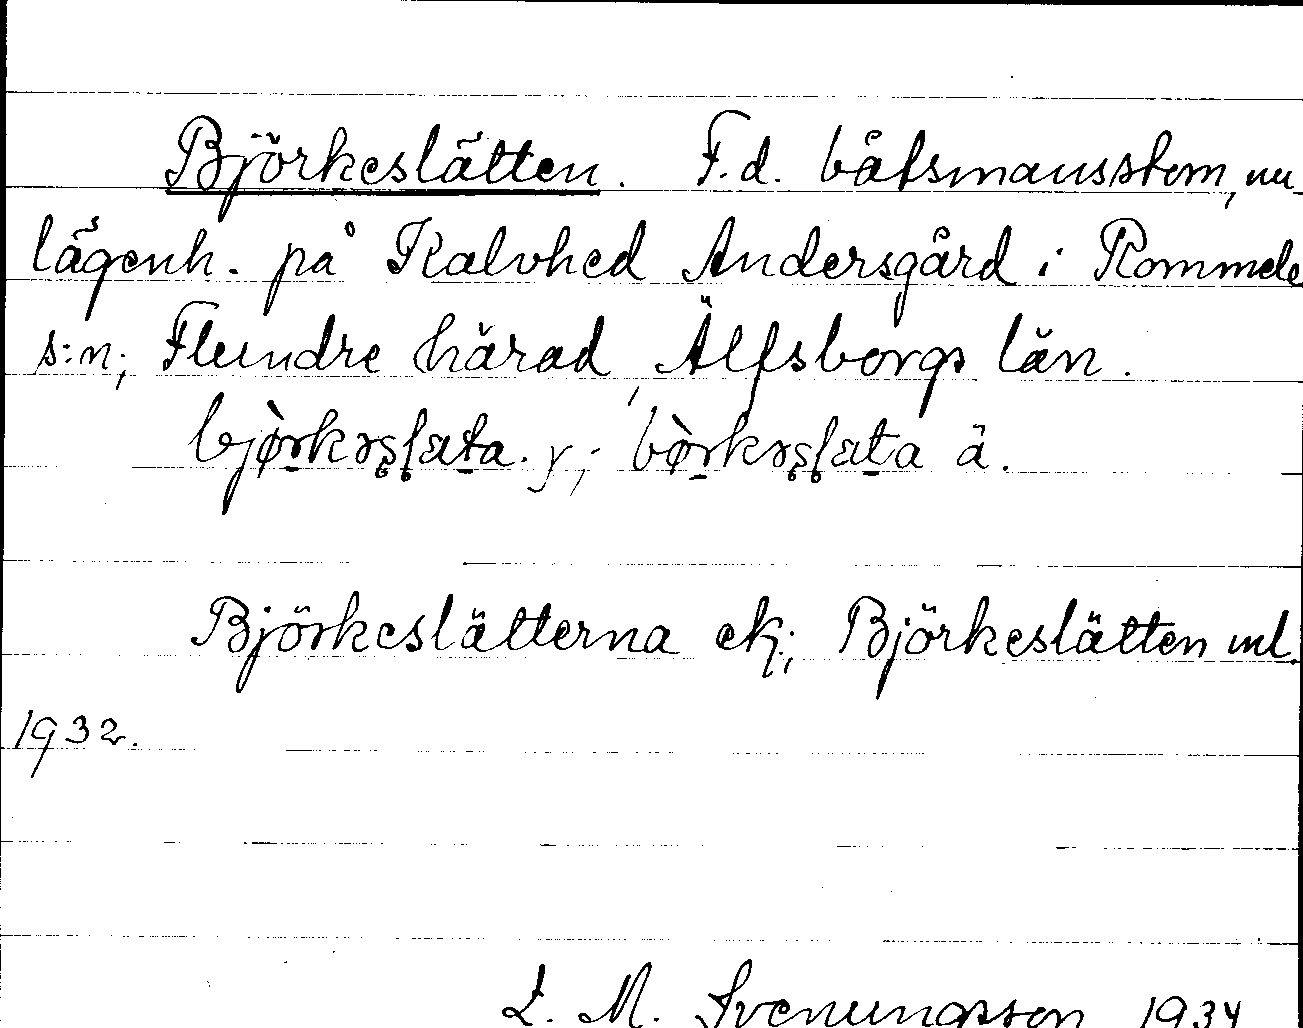 Björkeslätten. F.d. båtsmansstom, nu
lägenh. på Kalvhed Andersgård i Rommele
s:n; Flundre härad, Älfsborgs län.
bjò̠rkəs̥l̥ata. y; bò̠rkəs̥l̥ata ä.
Björkeslätterna ek; Björkeslätten ml.
1932.
L. M. Svenungsson 1934